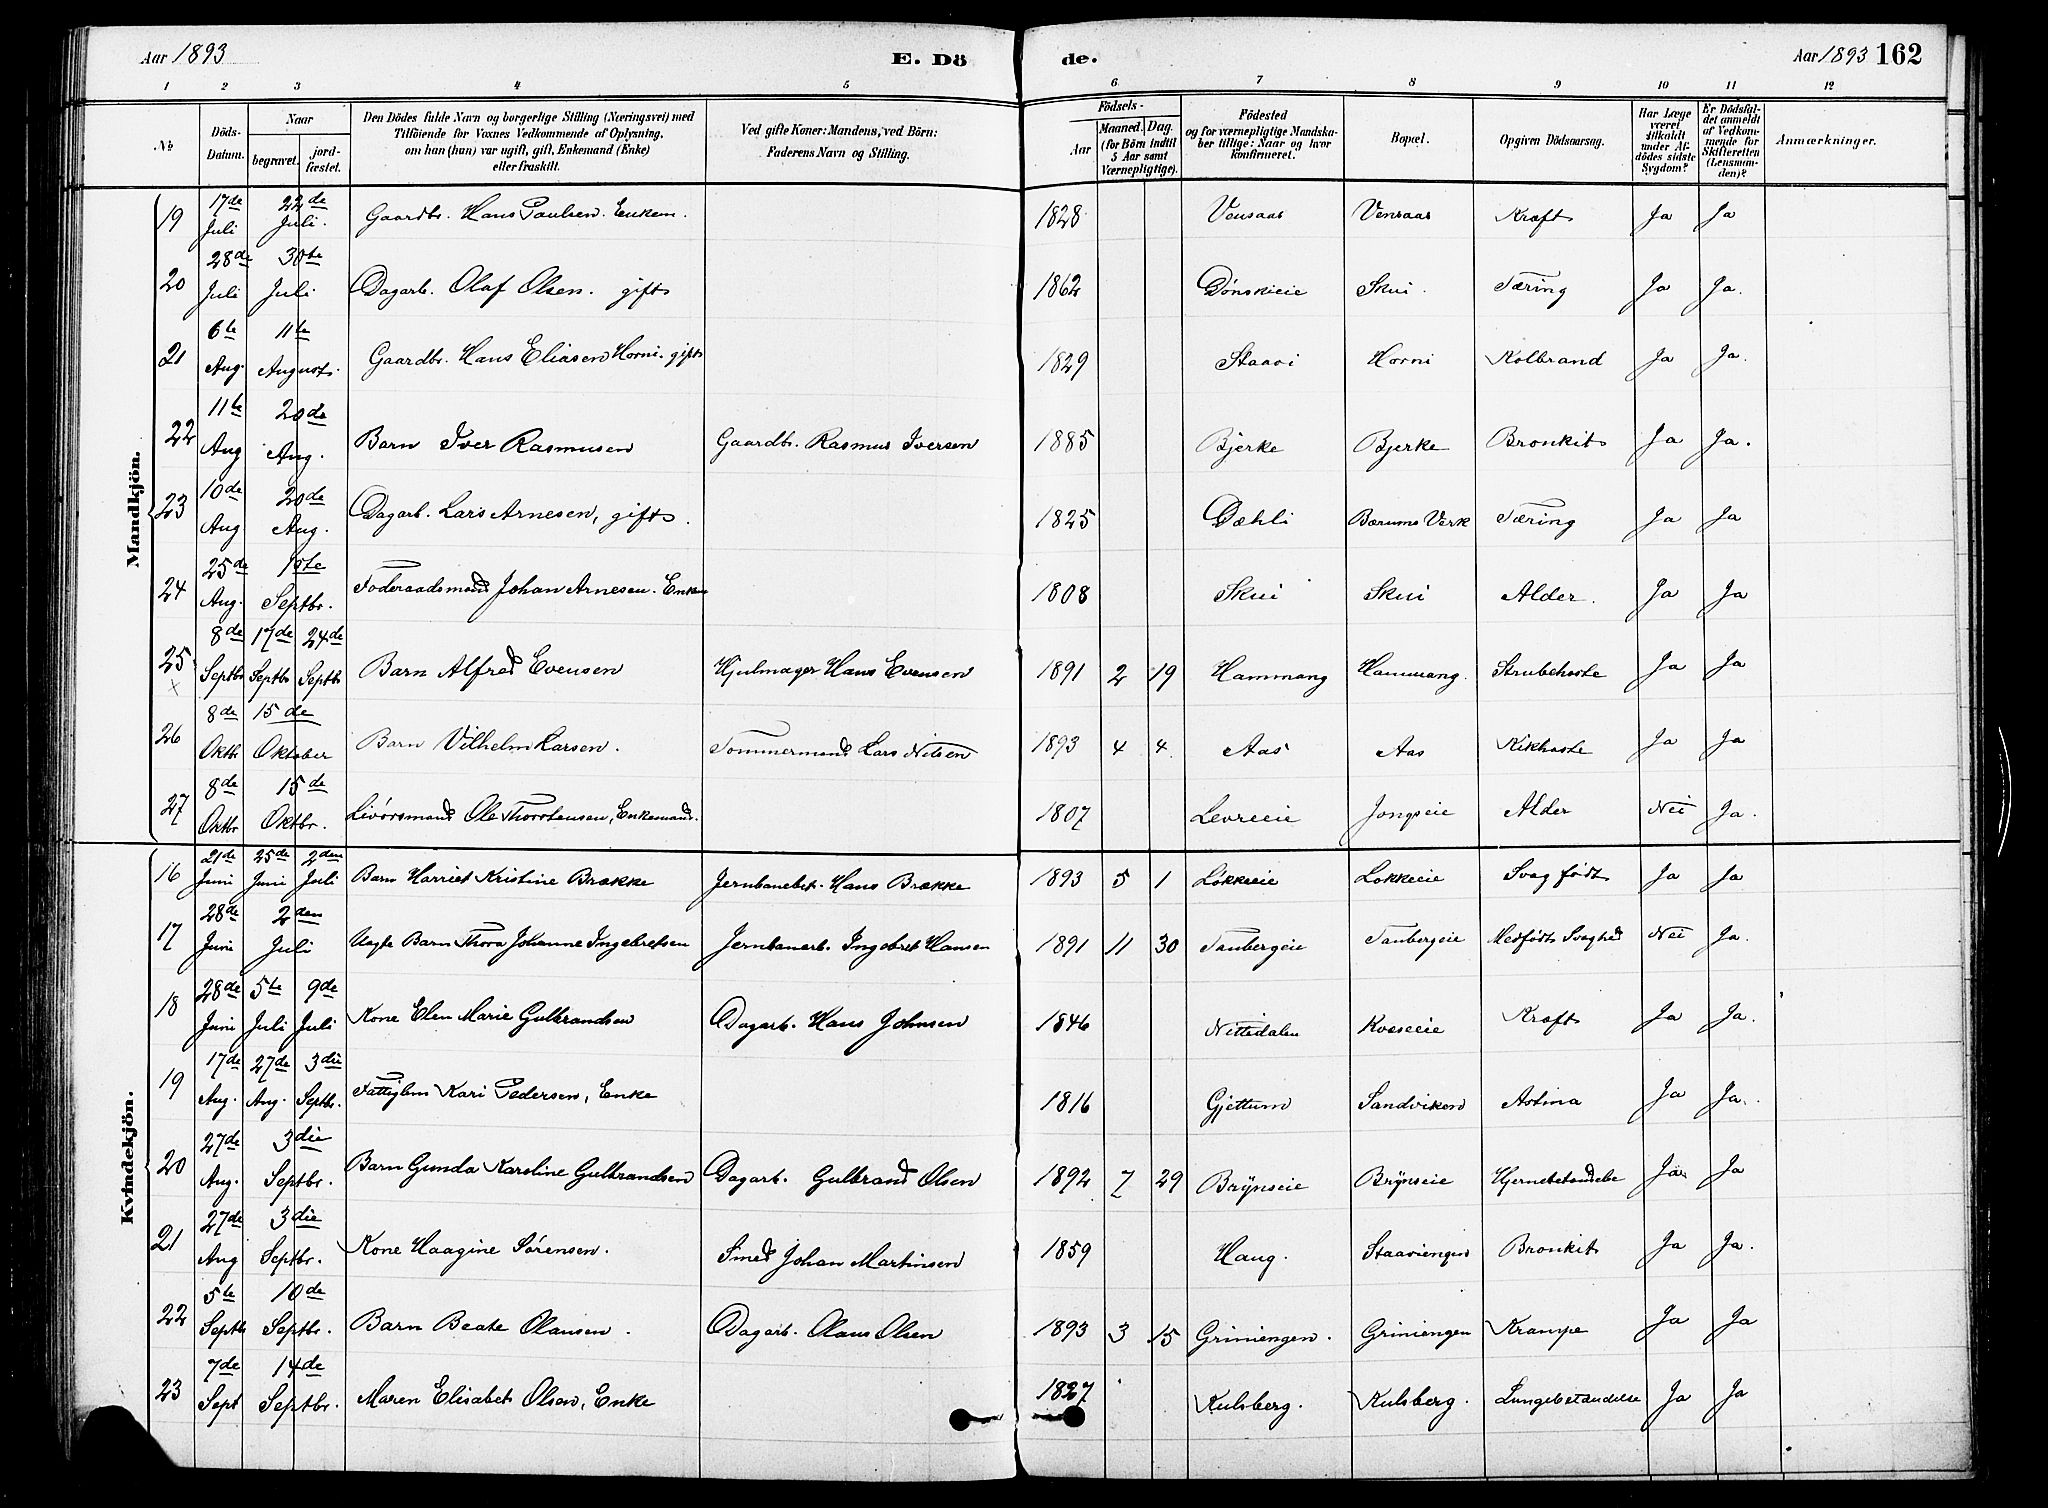 Aar 1893 E. Dö de. Aar 1893 162
1 2 3 4 5 6 7 8 9 10 11 12
№ Döds-Datum. Naar begravet. jordfæstet. Den Dödes fulde Navn og borgerlige Stilling (Næringsvei) med Tilföiende for Voxnes Vedkommende af Oplysning, om han (hun) var ugift, gift, Enkemand (Enke) eller fraskilt. Ved gifte Koner: Mandens, ved Börn: Faderens Navn og Stilling. Födsels- Aar Maaned. Dag. (for Börn indtil 5 Aar samt Værnepligtige). Födested og for værnepligtige Mandskaber tillige: Naar og hvor konfirmeret. Bopæl. Opgiven Dödsaarsag. Har Læge været tilkaldt under Afdödes sidste Sygdom? Er Dödsfaldet anmeldt af Vedkommende for Skifteretten (Lensmanden)? Anmærkninger.
Mandkjön.
19 17de Juli 22de Juli. Gaardbr. Hans Paulsen. Enkem. 1828 Vensaas Vensaas Kræft Ja Ja
20 28de Juli 30te Juli Dagarb. Olaf Olsen. gift 1862 Dønskieie Skui. Tæring Ja Ja.
21 6te Aug. 11te August. Gaardbr. Hans Eliasen Horni. gift 1829 Staavi Horni Kolbrand Ja Ja.
22 11te Aug 20de Aug. Barn Iver Rasmusen Gaardbr. Rasmus Iversen 1885 Bjerke Bjerke Bronkit Ja Ja.
23 10de Aug 20de Aug. Dagarb. Lars Arnesen, gift. 1825 Dæhli Bærums Verk Tæring Ja Ja
24 25de Aug. 1ste Septbr. Foderaadsmand Johan Arnesen. Enkem 1808 Skui Skui Alder. Ja Ja
25 8de Septbr 17de Septbr 24de Septbr Barn Alfred Evensen Hjulmager Hans Evensen 1891 2 19 Hammang Hammang. Strubehoste Ja Ja
26 8de Oktbr 15de Oktober Barn Vilhelm Larsen. Tømmermand Lars Nilsen 1893 4 4 Aas Aas Kikhoste Ja Ja
27 8de Oktbr 15de Oktbr. Livørsmand Ole Thorstensen, Enkemand. 1807 Levreeie Jongseie Alder Nei Ja.
Kvindekjön.
16 21de Juni 25de Juni 2den Juli Barn Harriet Kristine Brække Jernbanebet. Hans Brække 1893 5 1 Løkkeeie Løkkeeie Svag født Ja Ja
17 28de Juni 2den Juli Uægte Barn Thora Johanne Ingebretsen Jernbanearb. Ingebret Hansen 1891 11 30 Tanbergeie Tanbergeie Medfødt Svaghed Nei Ja.
18 28de Juni 5te Juli 9de Juli Kone Elen Marie Gulbrandsen Dagarb. Hans Johnsen 1846 Nittedalen Kvæseeie Kræft Ja Ja.
19 17de Aug. 27de Aug. 3die Septbr. Fattiglem Kari Pedersen, Enke 1816 Gjettum Sandviken Astma Ja Ja.
20 27de Aug. 3die Septbr. Barn Gunda Karoline Gulbrandsen Dagarb. Gulbrand Olsen 1892 7 29 Brÿnseie Brÿnseie Hjernebetændelse Ja Ja
21 27de Aug 3die Septbr. Kone Haagine Sørensen. Smed Johan Martinsen 1859 Haug. Staaviengen Bronkit Ja Ja.
22 5te Septbr 10de Septbr. Barn Beate Olausen. Dagarb. Olaus Olsen 1893 3 15 Griniengen. Griniengen Krampe Ja Ja
23 7de Sept 14de Septbr. Maren Elisabet Olsen, Enke 1827 Kulsberg. Kulsberg. Lungebetændelse Ja Ja